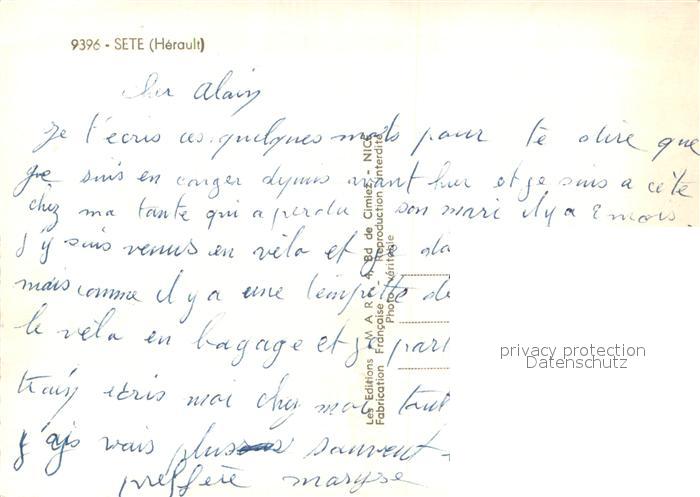 9396 - SETE (Hérault)
cher Alain
Je t'écris ces quelques mots pour te dire que
je suis en conger depuis avant hier et je suis a cète
chez ma tante qui a perdu son mari il y a 2 mois.
J'y suis venus en vélo et je
mais comme il y a une tempètte de
le vélo en bagage et je part
train ecris moi chez moi
vais plus souvent
maryse
Les Editions "M A R", 4, Bd de Cimiez - NICE
Fabrication Française - Reproduction interdite
Photo véritable
privacy protection
Datenschutz